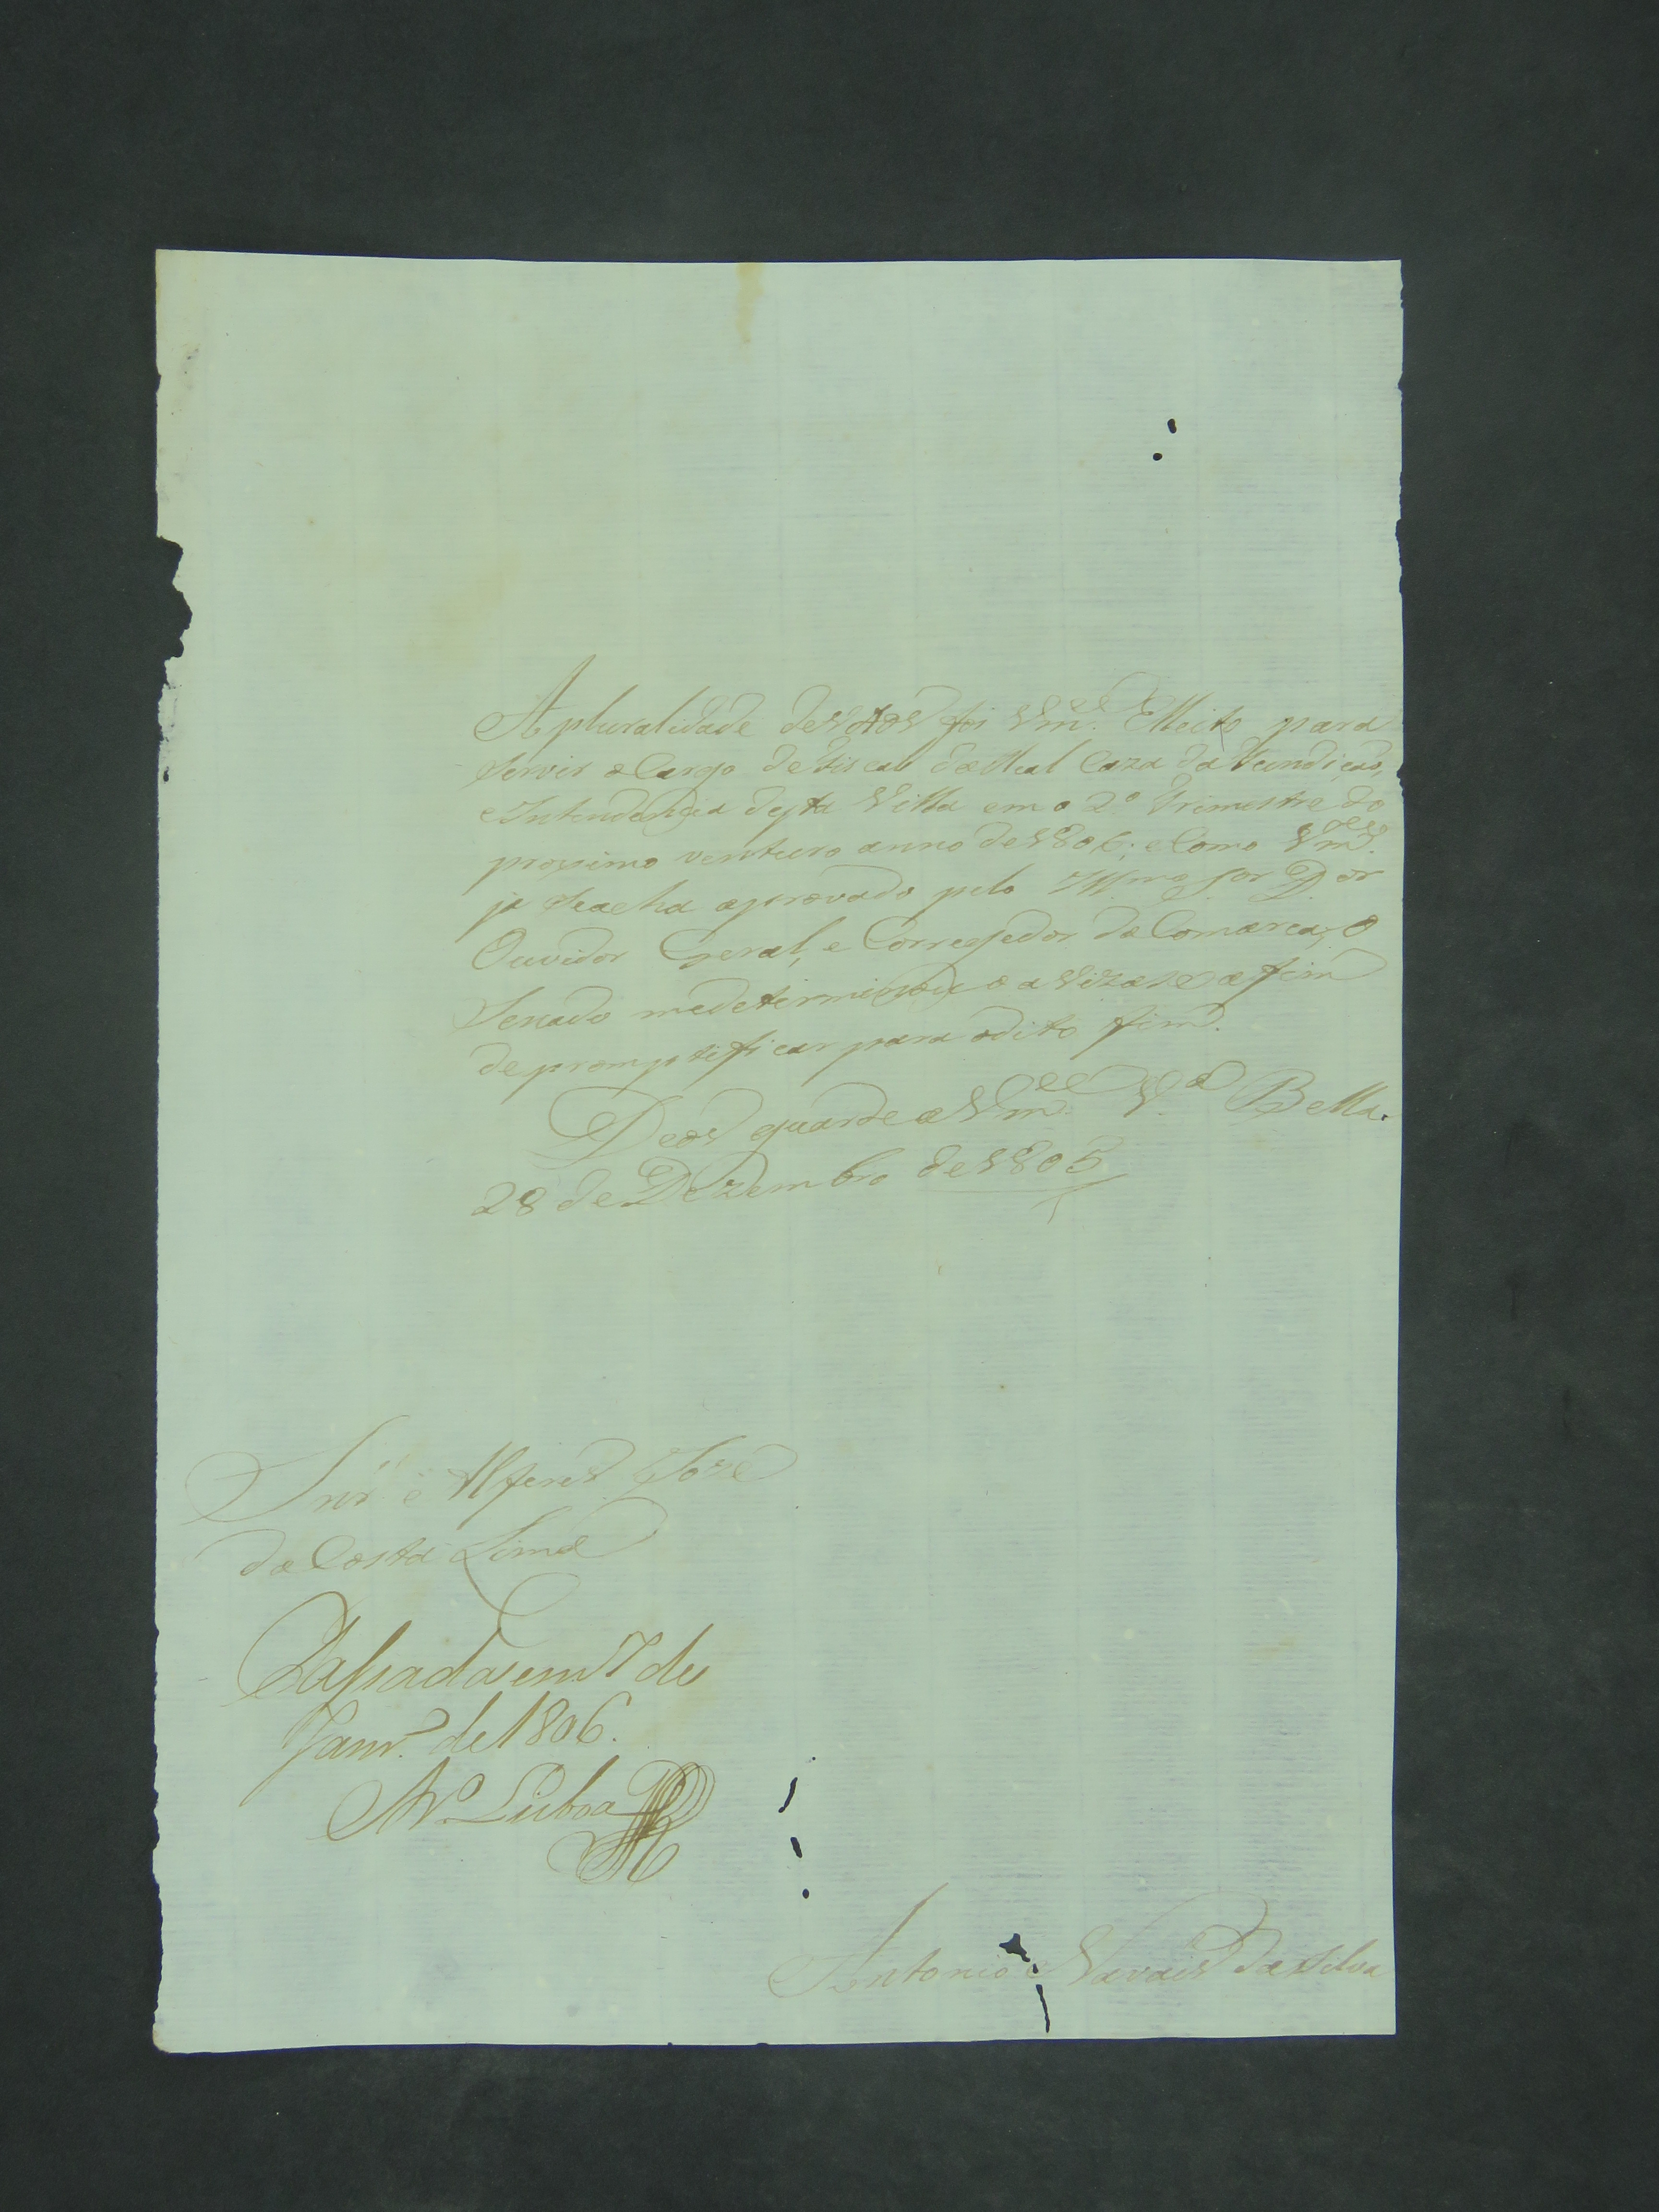 A pluralidade de votos foi Vm.ce Elleito para
servir o Cargo de Fiscal da Real Caza da Fundição,
e Intendencia desta Villa em o 2.º trimestre do
proximo venturo anno de 1806; e Como Vm.ce
ja se acha aprovado pelo Ill.mo Sor. D.or
Ouvidor Geral, e Corregedor da Comarca, o
Senado me determinou o avizase a fim
de promptificar para o dito fim.
Deos guarde a Vm.ce V.a Bella
28 de Dezembro de 1805
Snr. Alferes Joze
da Costa Lima
Passada em 7 de
Janr.º de 1806.
Lisboa
Antonio Navaes da Silva